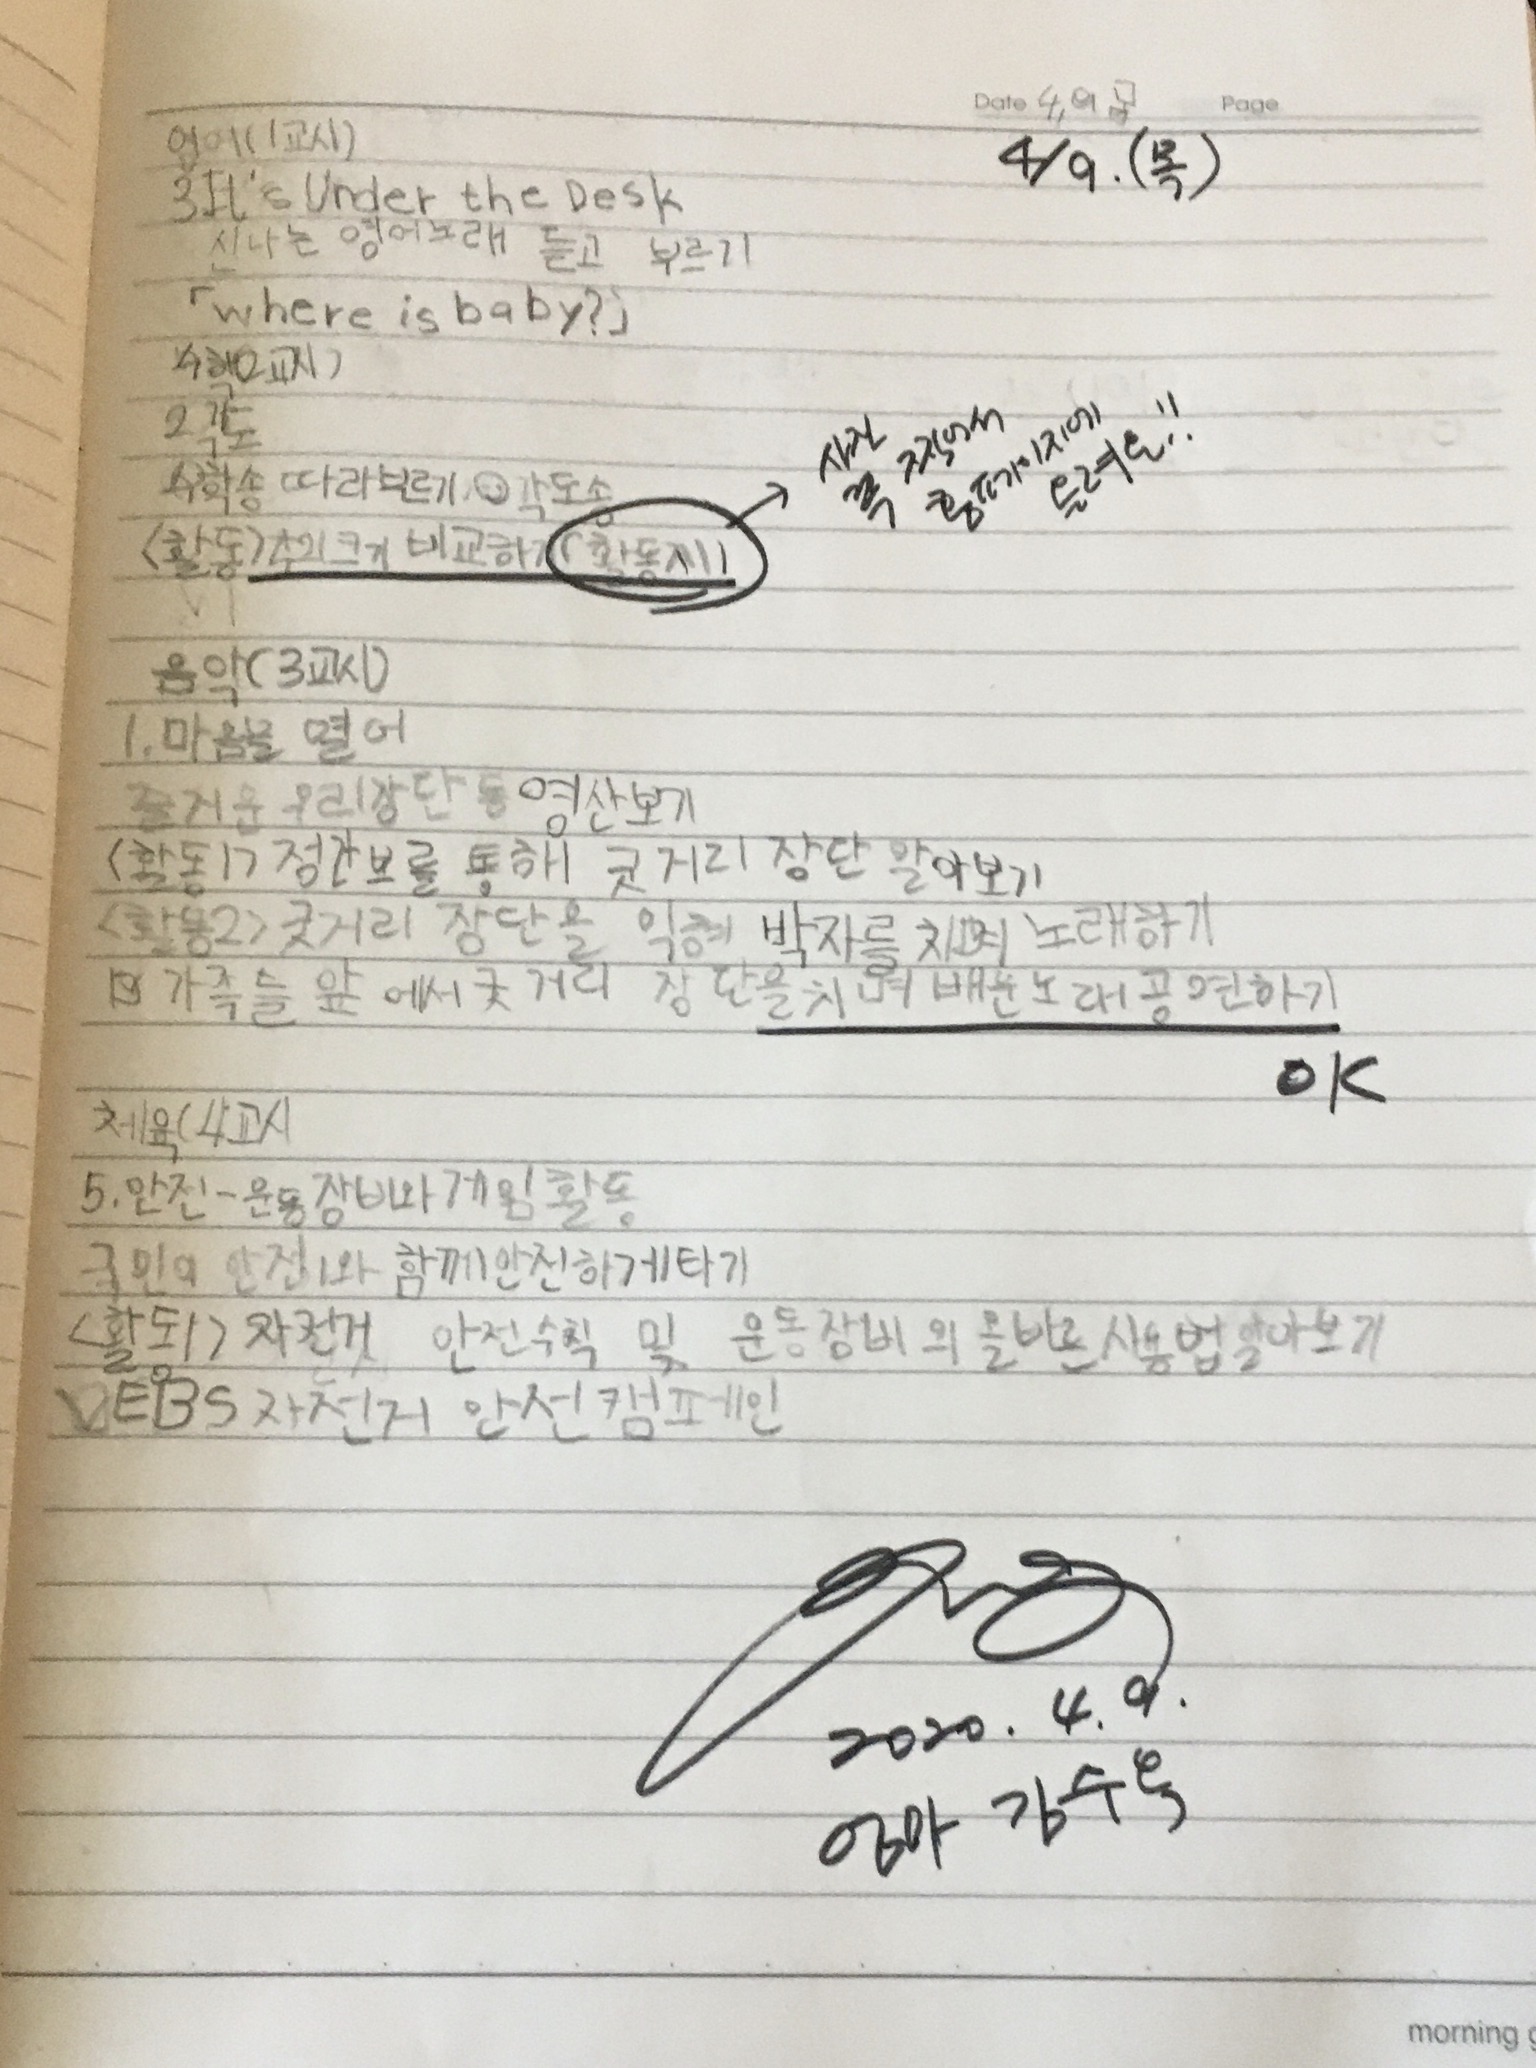 Date 4,9 목 Page
4/9.(목)
영어(1교시)
3 It's Under the Desk
신나는 영어노래 듣고 부르기
「where is baby?」
수학(2교시)
2 각도
수학송 따라부르기 각도송
<활동> 크기 비교하기(활동지)
사진 꼭 찍어서
홈페이지에
올려요!!
음악(3교시)
1.마음을 열어
즐거운 우리장단 동영산보기
<활동1> 정간보를 통해 굿거리 장단 알아보기
<활동2> 굿거리 장단을 익혀 박자를 치며 노래하기
가족들 앞에서 굿거리 장단을치며 배운노래공연하기
OK
체육(4교시
5.안전-운동장비와게임활동
국민의 안전와 함께안전하게타기
<활동1> 자전거 안전수칙 및 운동장비의 올바른사용법알아보기
EBS자전거 안전캠프페인
2020.4.9.
엄마 김수옥
morning